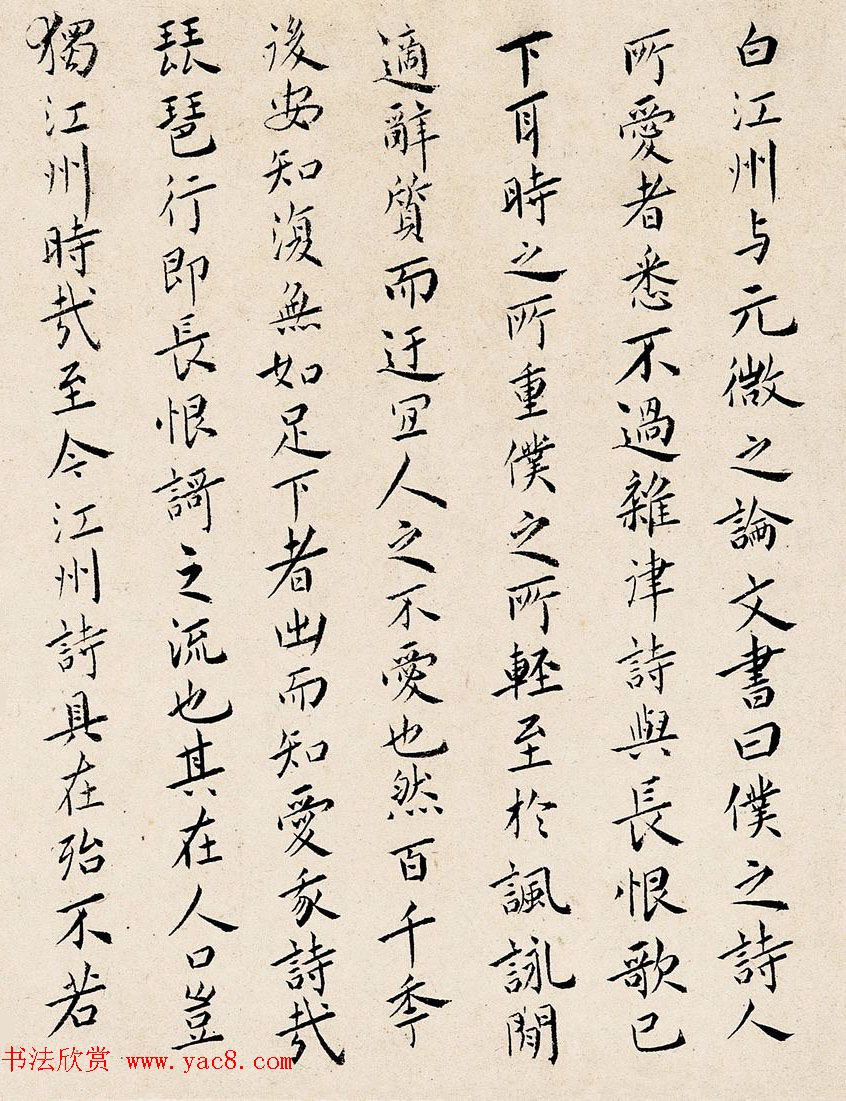 白江州与元微之論文書曰僕之詩人
所愛者悉不過雜津詩與長恨歌已
下耳時之所重僕之所輕至於諷詠閒
適辭質而迂宜人之不愛也然百千季
後安知復無如足下者出而知愛我詩哉
琵琶行即長恨謌之流也其在人口豈
獨江州時哉至今江州詩具在殆不若
书法欣赏 www.yac8.com